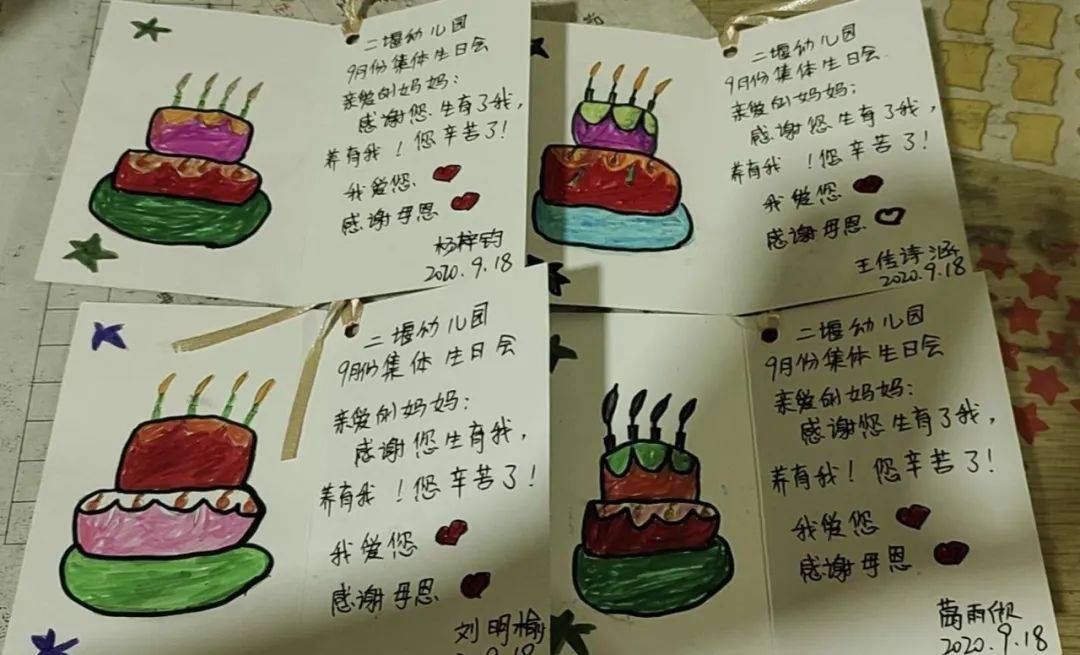 二堰幼儿园
9月份集体生日会
亲爱的妈妈：
感谢您生育了我，
养育我！您辛苦了！
我爱您
感谢母恩
杨梓钧
2020.9.18
二堰幼儿园
9月份集体生日会
亲爱的妈妈：
感谢您生育了我，
养育我！您辛苦了！
我爱您
感谢母恩
王传诗涵
2020.9.18
二堰幼儿园
9月份集体生日会
亲爱的妈妈：
感谢您生育我，
养育我！您辛苦了！
我爱您
感谢母恩
刘明榆
9.18
二堰幼儿园
9月份集体生日会
亲爱的妈妈：
感谢您生育了我，
养育我！您辛苦了！
我爱您
感谢母恩
雨
2020.9.18